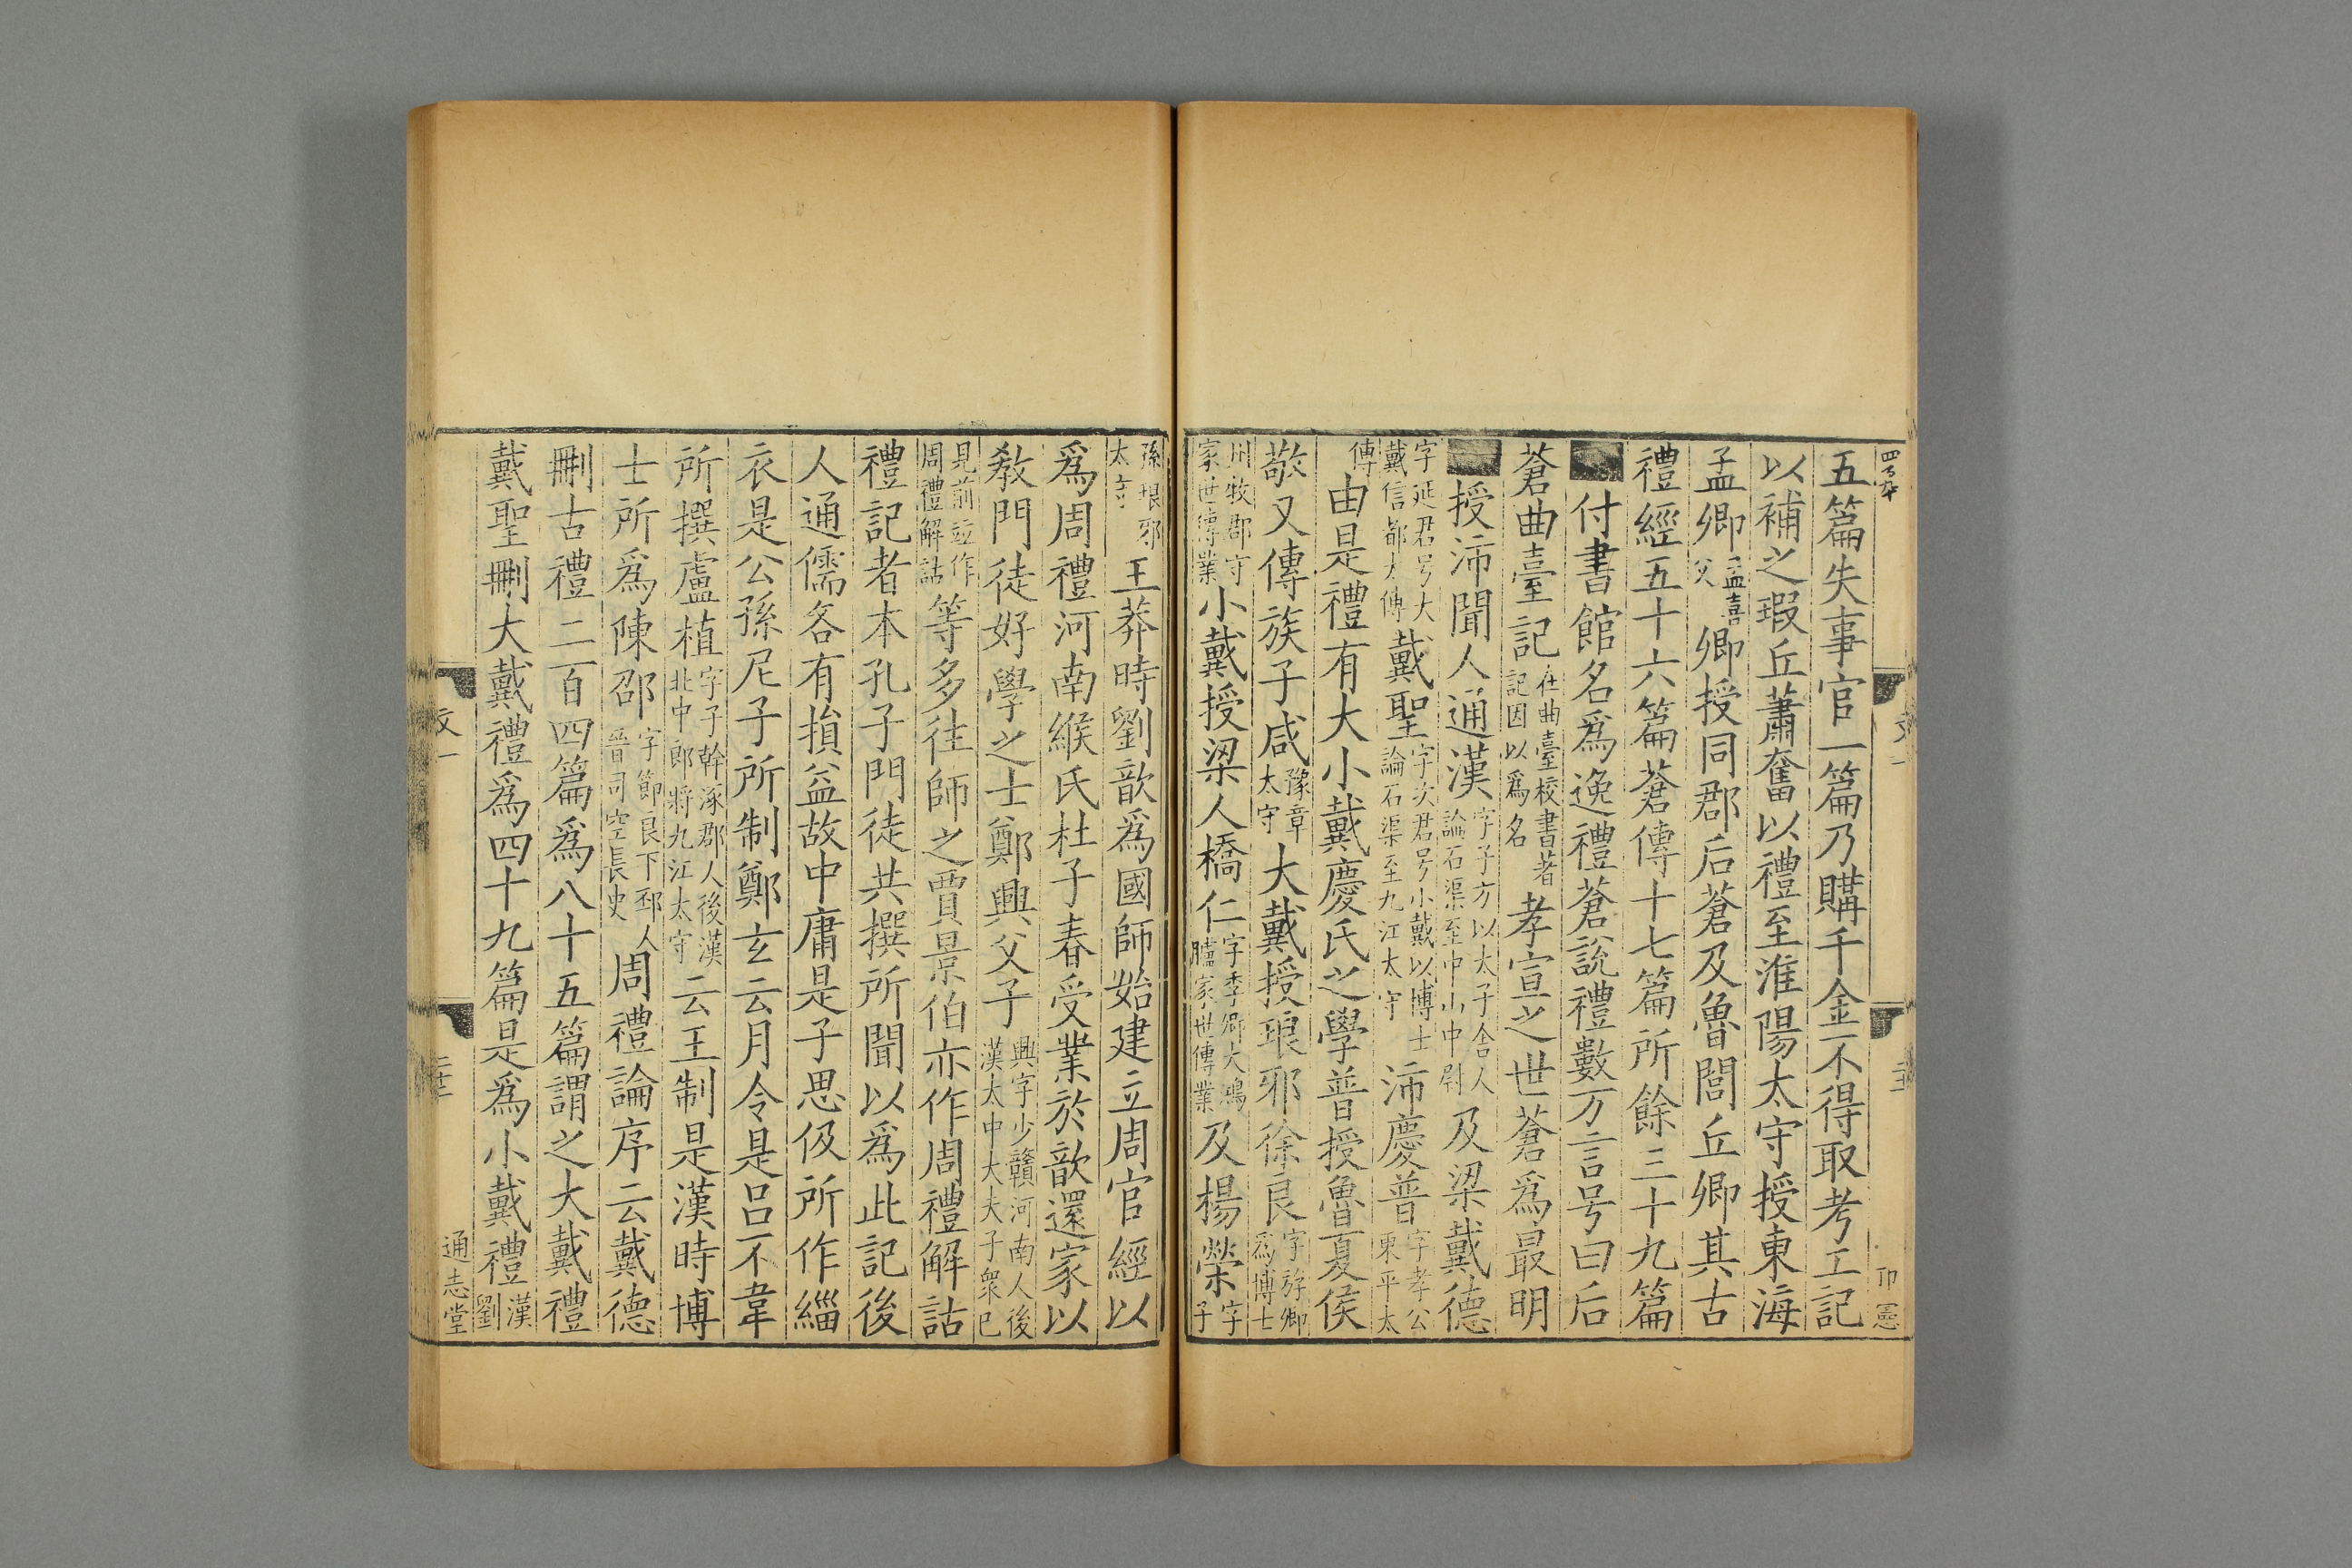 四百卒
文一
二十一
卭憲
五篇失事官一篇乃購千金不得取考工記
以補之瑕丘蕭奮以禮至淮陽太守授東海
孟卿孟喜父卿授同郡后蒼及魯閭丘卿其古
禮經五十六篇蒼傳十七篇所餘三十九篇
付書館名爲逸禮蒼說禮數万言号曰后
蒼曲臺記在曲臺校書著記因以爲名孝宣之世蒼爲最明
授沛聞人通漢字子方以太子舍人論石渠至中山中尉及梁戴德
字延君号大戴信都太傅戴聖字次君号小戴以博士論石渠至九江太守沛慶普字孝公東平太
傅由是禮有大小戴慶氏之學普授魯夏侯
敬又傳族子咸豫章太守大戴授琅邪徐良字斿卿爲博士
州牧郡守家世傳業小戴授梁人橋仁字季卿大鴻臚家世傳業及楊榮字子
孫琅邪太守王莽時劉歆爲國師始建立周官經以
爲周禮河南緱氏杜子春受業於歆還家以
敎門徒好學之士鄭興父子興字少贛河南人後漢太中大夫子衆已
見前竝作周禮解詁等多往師之賈景伯亦作周禮解詁
禮記者本孔子門徒共撰所聞以爲此記後
人通儒各有損益故中庸是子思伋所作緇
衣是公孫尼子所制鄭玄云月令是呂不韋
所撰盧植字子幹涿郡人後漢北中郎將九江太守云王制是漢時博
士所爲陳邵字節良下邳人晉司空長史周禮論序云戴德
刪古禮二百四篇爲八十五篇謂之大戴禮
戴聖刪大戴禮爲四十九篇是爲小戴禮漢劉
文一
通志堂